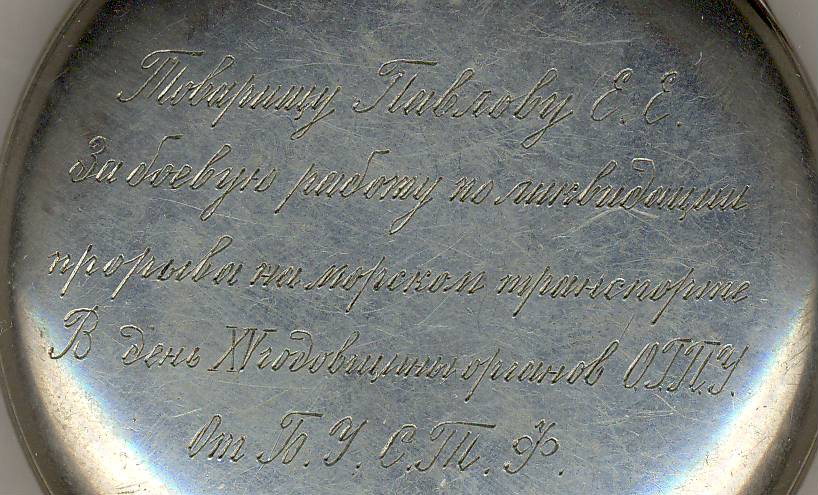 Товарищу Павлову Е. Е.
За боевую работу по ликвидации
прорыва на морском транспорте
В день XV годовщины органов ОГПУ.
От Б. У. С. Т. Ф.